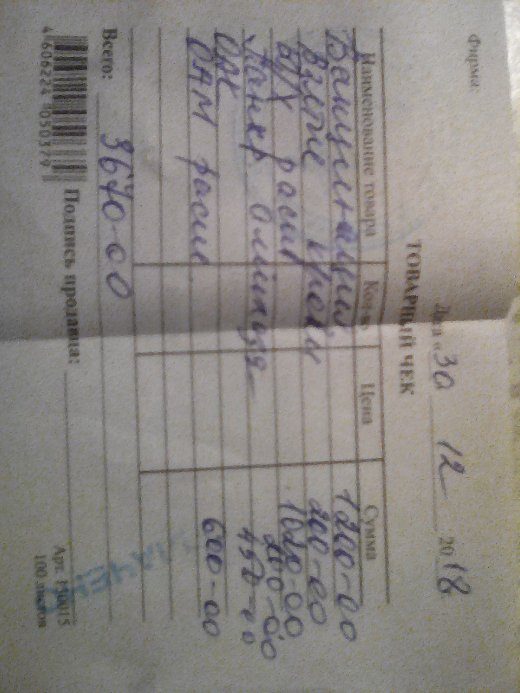 Фирма
Дата «30 12 2018
ТОВАРНЫЙ ЧЕК
Наименование товара Кол-во Цена Сумма
Вакцинация 1200-00
взятие крови 200-00
б/х расш 1020-00
200-00
450-00
ОАК
ОАМ расш 600-00
Всего: 3670-00
4 606224 405031 9
Подпись продавца:
Арт.
100 листов